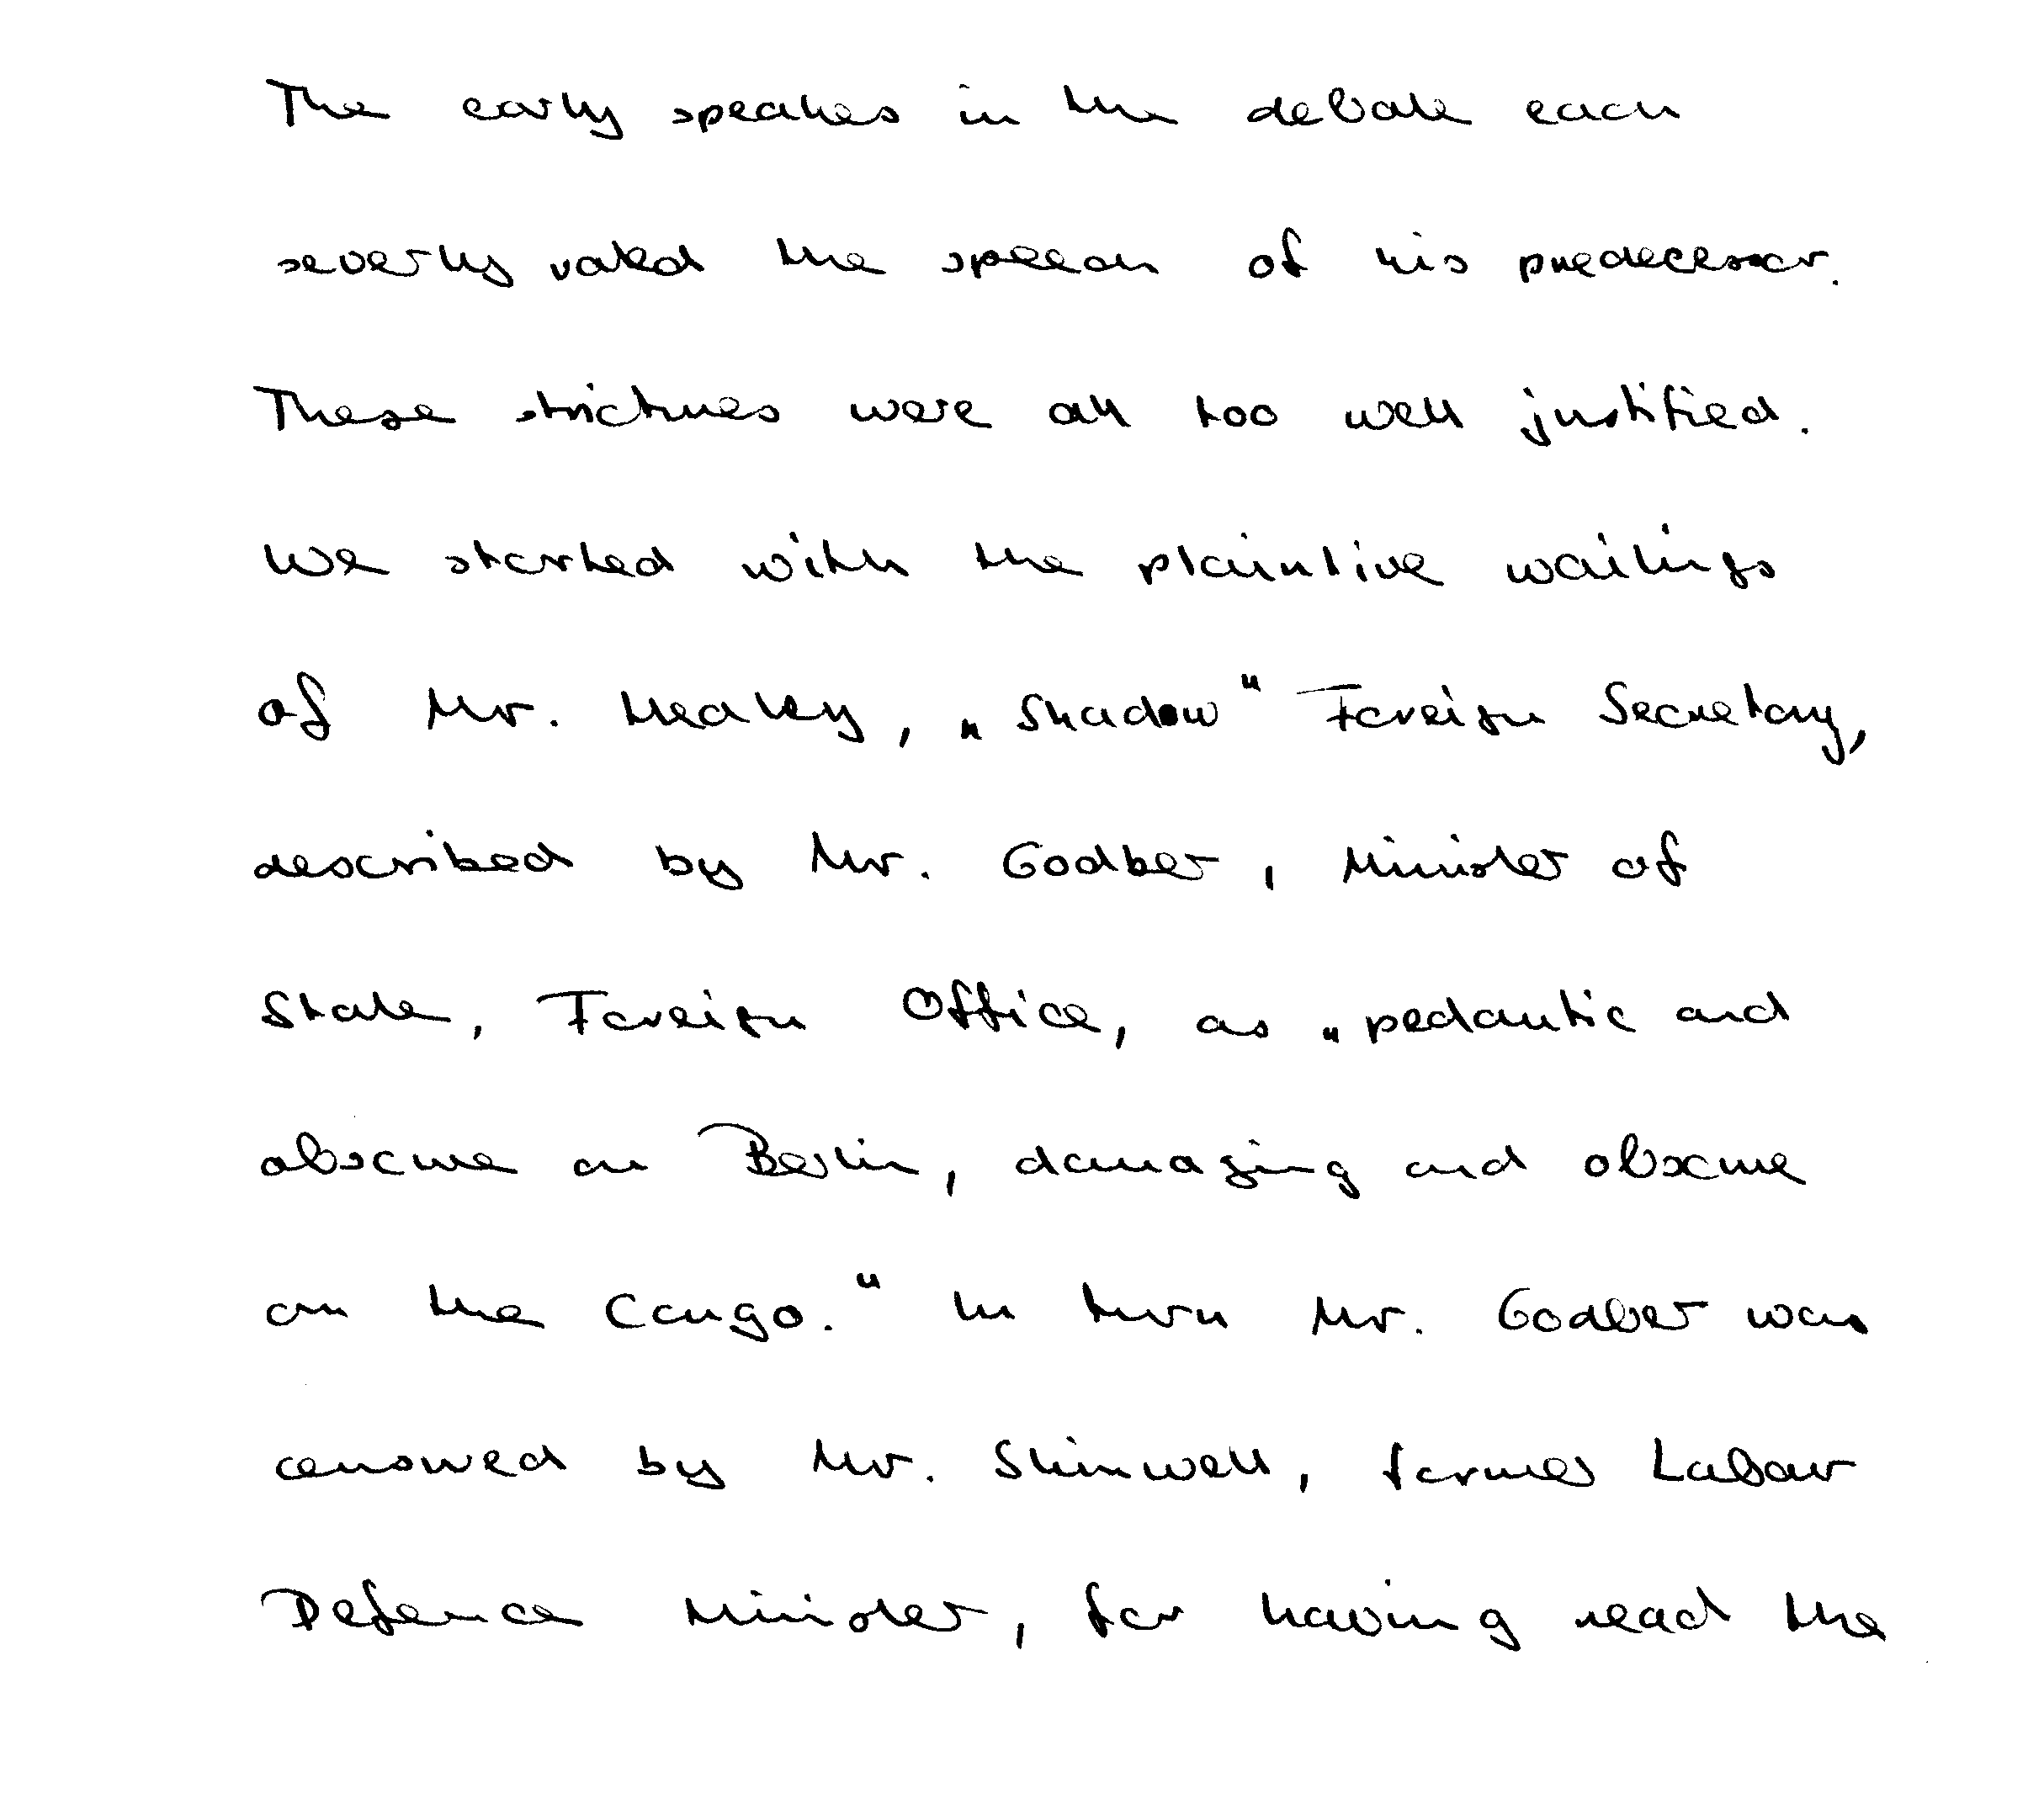 The early speakers in the debate each
severly rated the speech of his predecessor.
These strictures were all too well justified.
We started with the plaintive wailings
of Mr. Healey, "Shadow" Foreign Secretary,
described by Mr. Godber, Minister of
State, Foreign Office, as "pedantic and
obscure on Berlin, damaging and obscure
on the Congo." In turn Mr. Godber was
censured by Mr. Shinwell, former Labour
Defence Minister, for having read the